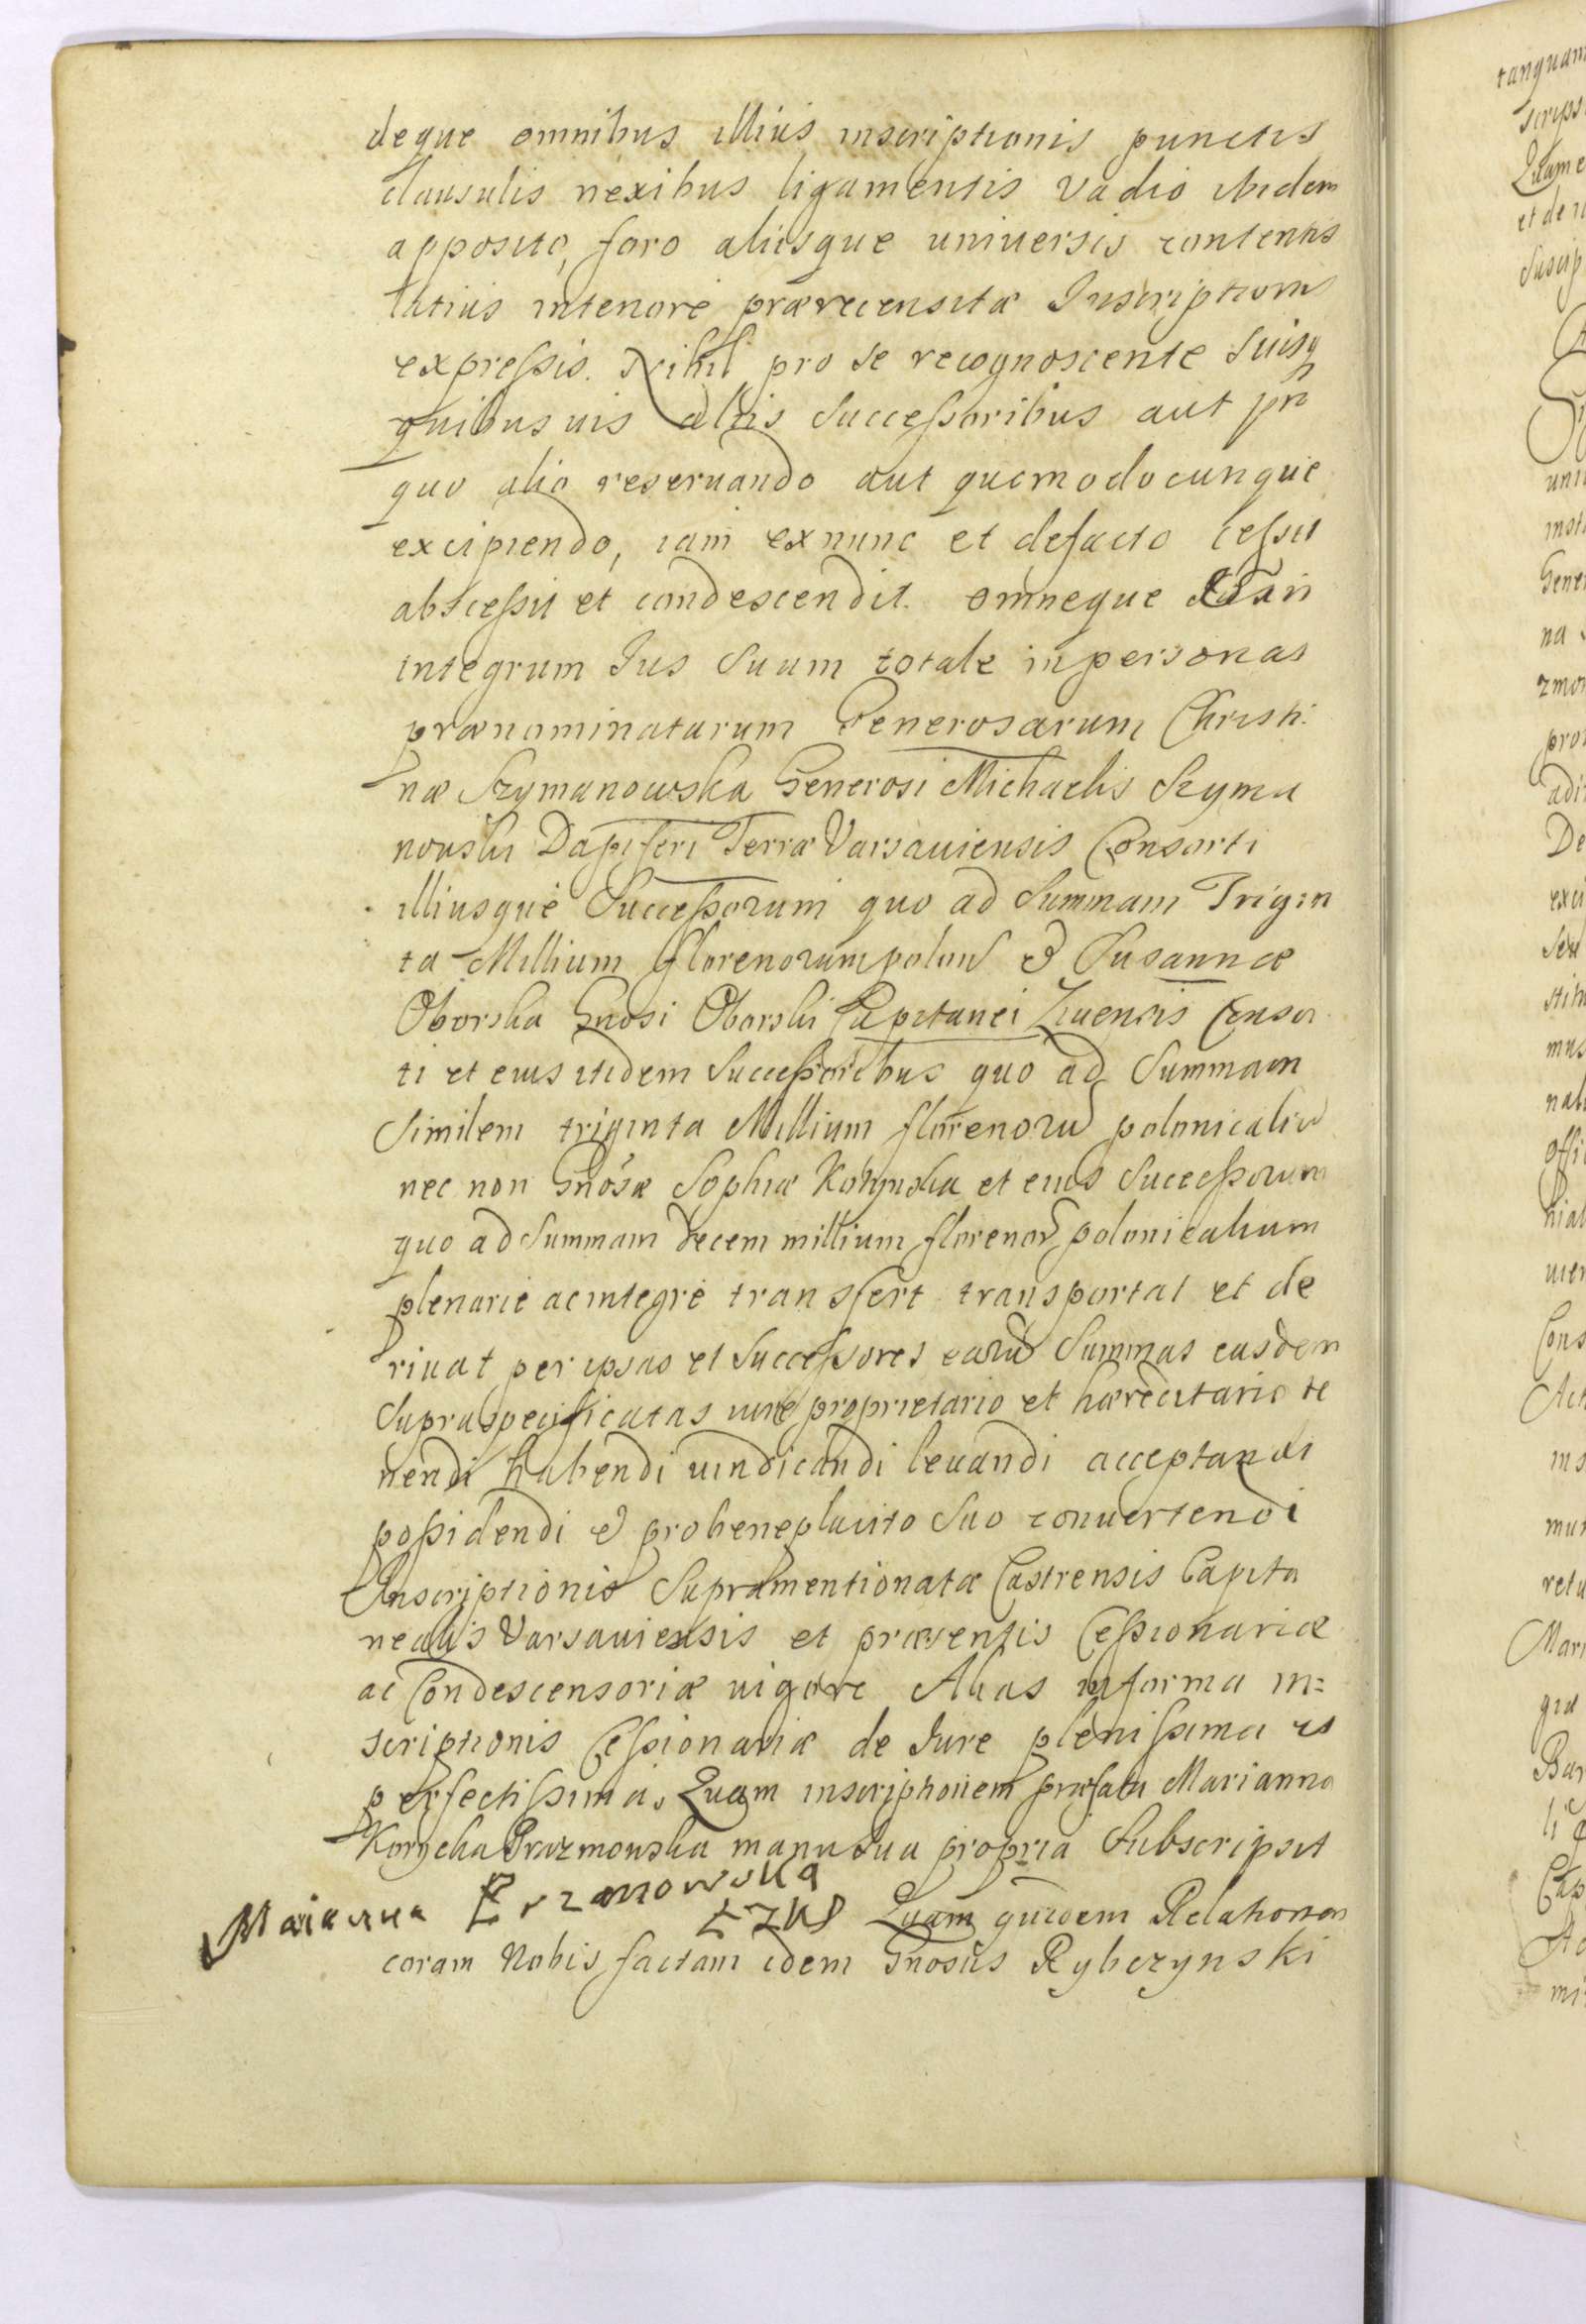 deque omnibus illius inscriptionis punctis
clausulis nexibus ligamentis vadio ibidem
apposito, foro aliisque universis contentis
latius intenore prærecensitæ Inscriptionis
expressis. Nihil pro se recognoscente suisq
quibusuis aliis Successoribus aut pro
quo alio reseruando aut quemodocunque
excipiendo, iam exnunc et defacto cessit
abscessit et condescendit. omneque
integrum Ius Suum totale inpersonas
prænominatarum Generosarum Christi:
næ Szymanowska Generosi Michaelis Szyma
nouski Dapiferi Terræ Varsauiensis Consorti
illiusque Successorum quo ad Summam Trigin
ta Millium florenorum polon & Susannæ
Oborska Gnosi Oborski Capitanei Liuensis Consor
ti et eius itidem Successoribus quo ad Summam
Similem triginta Millium florenoru polonicaliu
nec non Gnosæ Sophiæ et eius Successorum
quo ad Summam decem millium florenor polonicalium
plenarie acintegre transfert transportat et de
riuat per ipsas et Successores earu Summas easdem
Supraspecificatas iure proprietario et hæreditario te
nendi habendi uindicandi leuandi acceptandi
possidendi & probeneplacito Suo conuertendi
Inscriptionis Supramentionatæ Castrensis Capita
nealis Varsauiensis et præsentis Cessionariæ
ac Condescensoriæ uigore Alias informa in=
scriptionis Cessionariæ de Iure plenissima et
perfectissima. Quam inscriptionem præfata Marianna
Korycka Prazmouska manu Sua propria Subscripsit
Marianna
Quam quidem Relationem
coram Nobis factam idem Gnosus Rybczynski